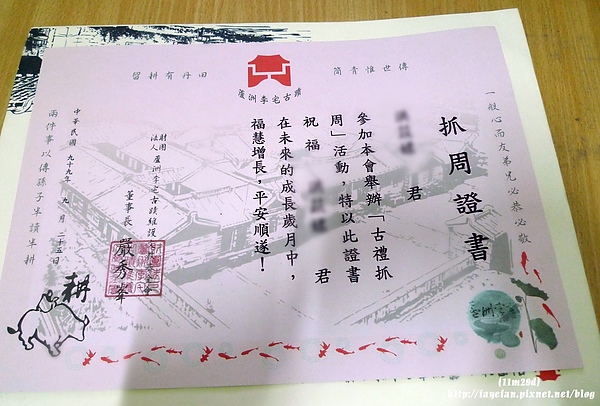 留耕有丹田
簡青惟世傳
蘆洲李宅古蹟
一般心而友弟兄必恭必敬
抓周證書
君
參加本會舉辦「古禮抓
周」活動,特以此證書
祝福 君
在未來的成長歲月中,
福慧增長,平安順遂!
財團
法人蘆洲李宅古蹟維護
董事長 嚴秀峯
中華民國 九十九年 九月 二十五日
兩件事以傳孫子半讀半耕
耕
(11m29d)
http://fayefan.pixnet.net/blog